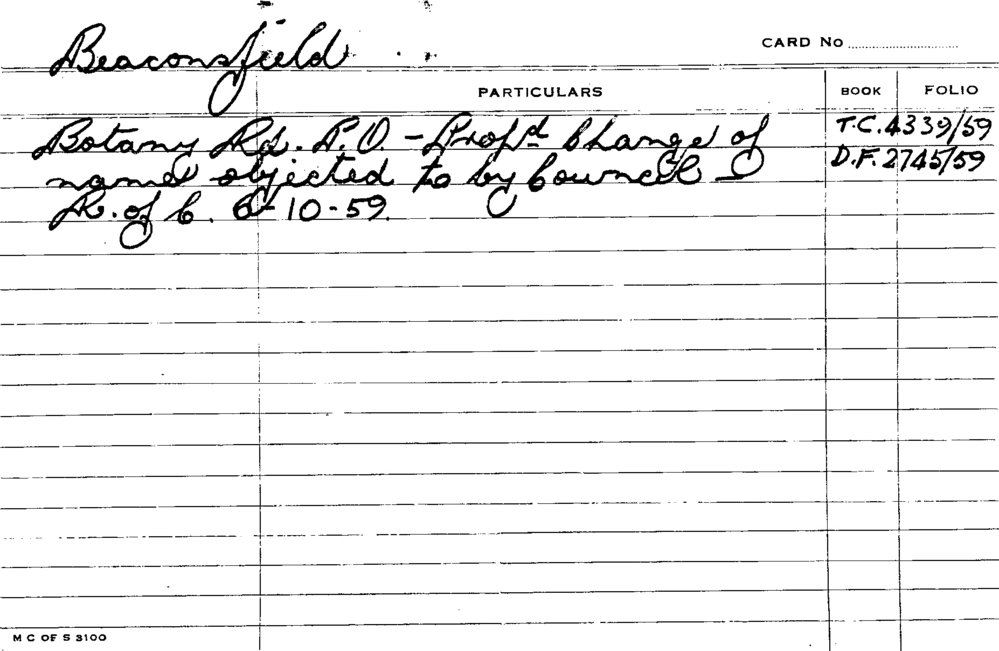 Beaconsfield
CARD No
PARTICULARS BOOK FOLIO
Botany Rd. P.O. - Propd Change of T.C. 4339/59
name objected to by Council - D.F. 2745/59
R. of C. 6-10-59.
M C OF S 3100